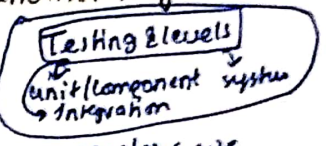 Testing & levels
unit/component system
→ Integration